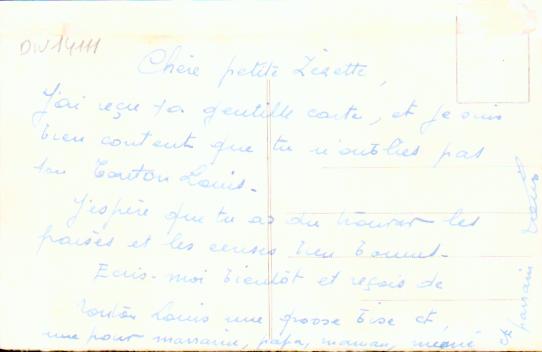 DW14111
Chère petite Lisette,
J'ai reçu ta gentille carte, et je suis
bien content que tu n'oublies pas
ton Tonton Louis.
J'espère que tu as du trouver les
et les bien bonnes.
Ecris-moi bientôt et reçois de
tonton Louis une grosse bise et,
une pour marraine, papa, maman, mémé
et parrain